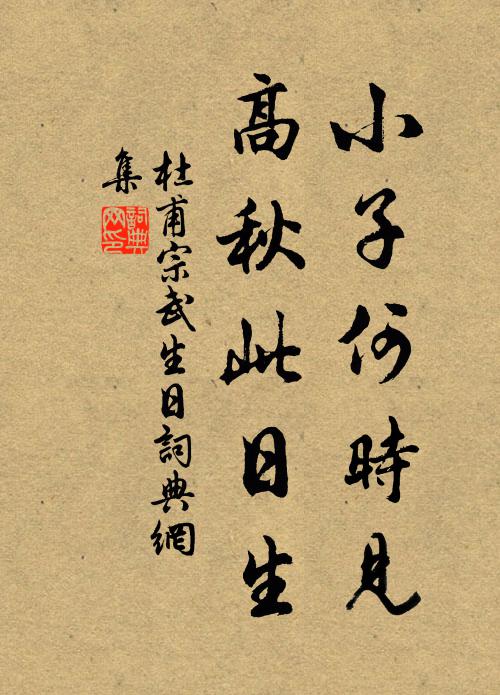 小子何時見
高秋此日生
杜甫宗武生日詞典網
集
詞典
网印